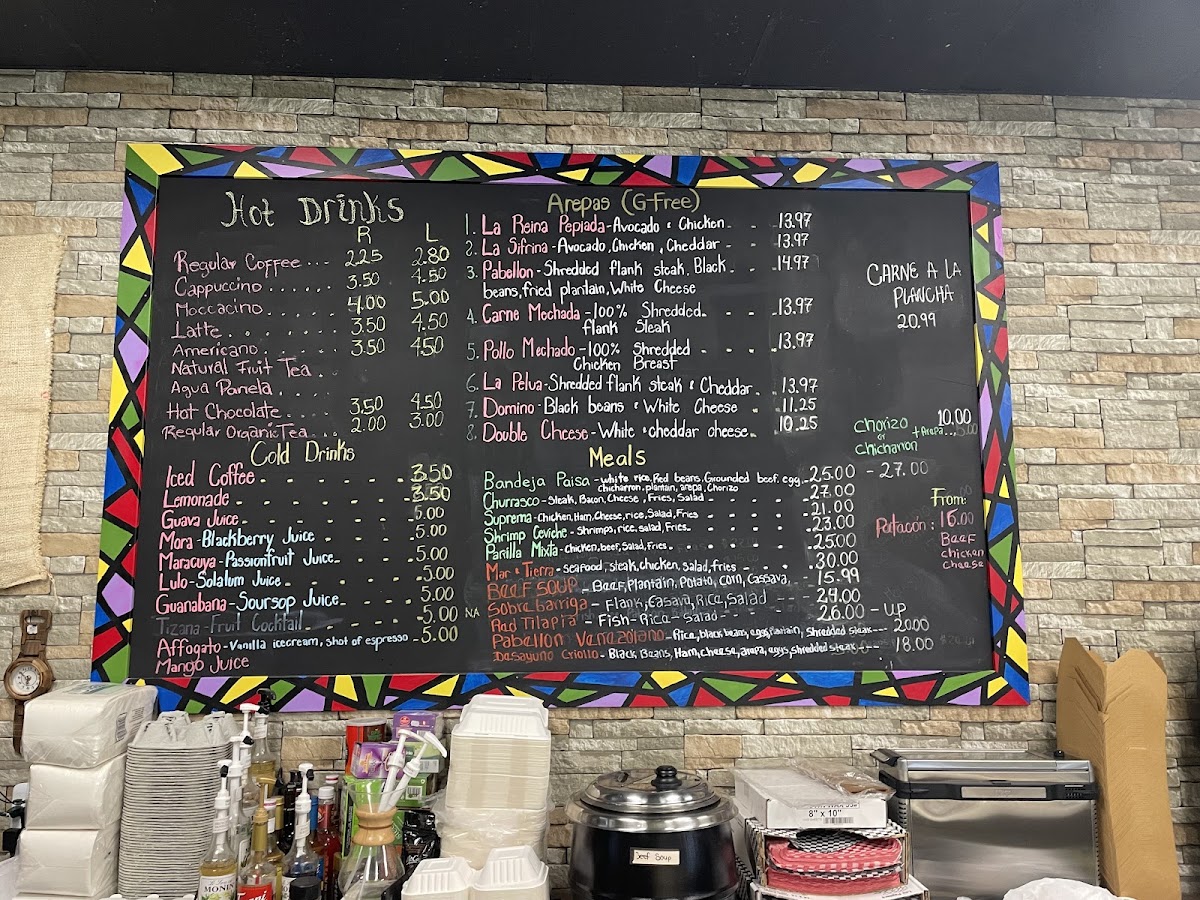 Hot Drinks
R L
Regular Coffee ... 2.25 2.80
Cappuccino ...... 3.50 4.50
Moccacino ...... 4.00 5.00
Latte ........ 3.50 4.50
Americano ...... 3.50 4.50
Natural Fruit Tea ..
Agua Panela ....
Hot Chocolate .... 3.50 4.50
Regular Organic Tea ... 2.00 3.00
Cold Drinks
Iced Coffee - - - - - - - 3.50
Lemonade - - - - - - - 3.50
Guava Juice - - - - - - 5.00
Mora - Blackberry Juice - - - - 5.00
Maracuya - Passionfruit Juice - - - 5.00
Lulo - Solalum Juice - - - - - 5.00
Guanabana - Soursop Juice - - - - 5.00
Tizana - Fruit Cocktail - - - - 5.00 NA
Affogato - Vanilla icecream, shot of espresso - 5.00
Mango Juice
Arepas (G-Free)
1. La Reina Pepiada - Avocado & Chicken - - 13.97
2. La Sifrina - Avocado, Chicken, Cheddar - - 13.97
3. Pabellon - Shredded flank steak, Black - - 14.97
beans, fried plantain, White Cheese
4. Carne Mechada - 100% Shredded - - - 13.97
flank steak
5. Pollo Mechado - 100% Shredded - - - - 13.97
Chicken Breast
6. La Pelua - Shredded flank steak & Cheddar - - 13.97
7. Domino - Black beans & White Cheese - - 11.25
8. Double Cheese - White & cheddar cheese - - 10.25
Meals
Bandeja Paisa - white rice, Red beans, Grounded beef, egg - - 25.00 - 27.00
chicharron, plantain, arepa, Chorizo
Churrasco - Steak, Bacon, Cheese, Fries, Salad - - - - - 27.00
Suprema - Chicken, Ham, Cheese, rice, Salad, Fries - - - - 21.00
Shrimp Ceviche - Shrimps, rice, salad, Fries - - - - - 23.00
Parilla Mixta - Chicken, beef, Salad, Fries - - - - - 25.00
Mar & Tierra - seafood, steak, chicken, salad, fries - - - - 30.00
BEEF SOUP - Beef, Plantain, Potato, Corn, Cassava, - - 15.99
Sobrebarriga - Flank, Casava, Rice, Salad - - - 24.00
Red Tilapia - Fish - Rice - Salad - - - - 26.00 - up
Pabellon Venezolano - Rice, black beans, eggs, plantain, shredded steak - - - 20.00
Desayuno Criollo - Black Beans, Ham, cheese, arepa, eggs, shredded steak - - - 18.00
CARNE A LA
PLANCHA
20.99
Chorizo 10.00
or + Arepa...5.00
chicharron
From:
Patacón: 16.00
Beef
chicken
cheese
Beef Soup
8" x 10"
MONIN